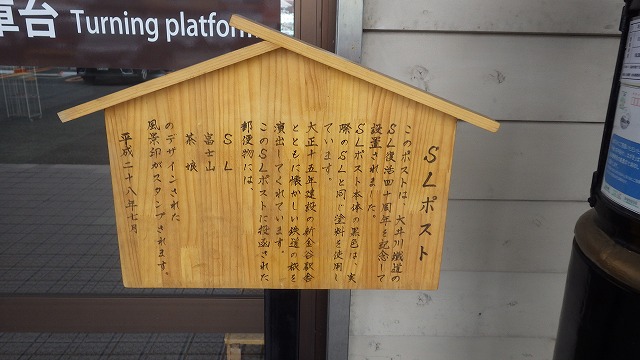 車台
Turning platform
SLポスト
このポストは、大井川鐵道の
SL復活四十周年を記念して
設置されました。
SLポスト本体の黒色は、実
際のSLと同じ塗料を使用し
ています。
大正十五年建設の新金谷駅舎
とともに懐かしい鉄道の旅を
演出してくれています。
このSLポストに投函された
郵便物には、
SL
富士山
茶娘
のデザインされた
風景印がスタンプされます。
平成二十八年七月